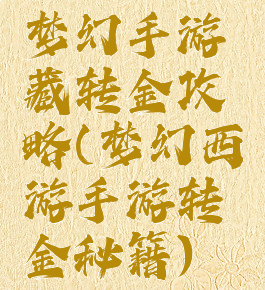 梦幻手游
藏转金攻
略(梦幻西
游手游转
金秘籍)